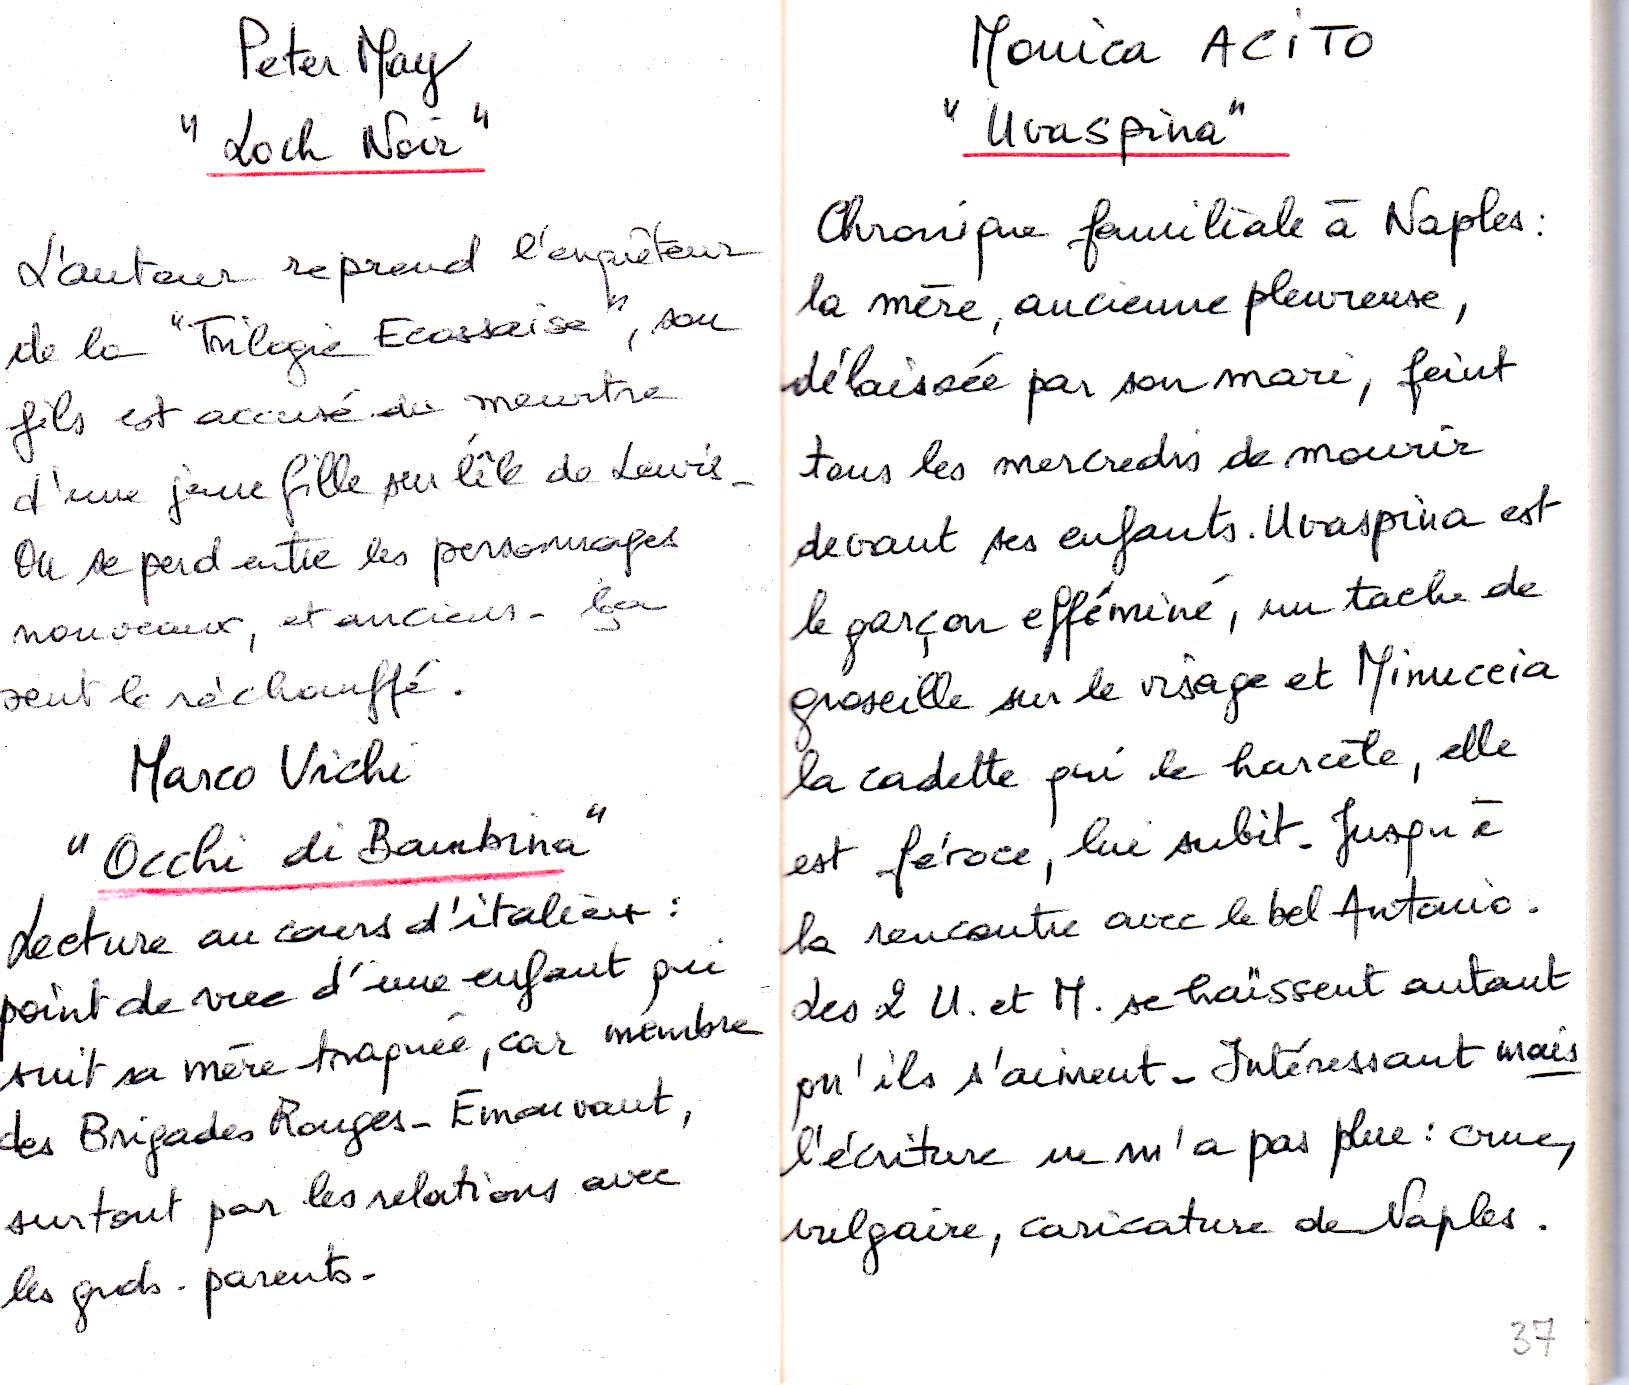 Peter May
"Loch Noir"
L'auteur reprend l'enquêteur
de la "Trilogie Ecossaise", son
fils est accusé du meurtre
d'une jeune fille sur l'île de Lewis -
On se perd entre les personnages
nouveaux, et anciens - Ça
sent le réchauffé.
Marco Vichi
"Occhi di Bambina"
Lecture au cours d'italien :
point de vue d'une enfant qui
suit sa mère traquée, car membre
des Brigades Rouges - Emouvant,
surtout par les relations avec
les grds - parents -
Monica ACiTO
"Uvaspina"
Chronique familiale à Naples :
la mère, ancienne pleureuse,
délaissée par son mari, feint
tous les mercredis de mourir
devant ses enfants. Uvaspina est
le garçon efféminé, un tache de
groseille sur le visage et Minuccia
la cadette qui le harcèle, elle
est féroce, lui subit - Jusqu'à
la rencontre avec le bel Antonio.
Les 2 U. et M. se haïssent autant
qu'ils s'aiment - Intéressant mais
l'écriture ne m'a pas plue : crue,
vulgaire, caricature de Naples.
37